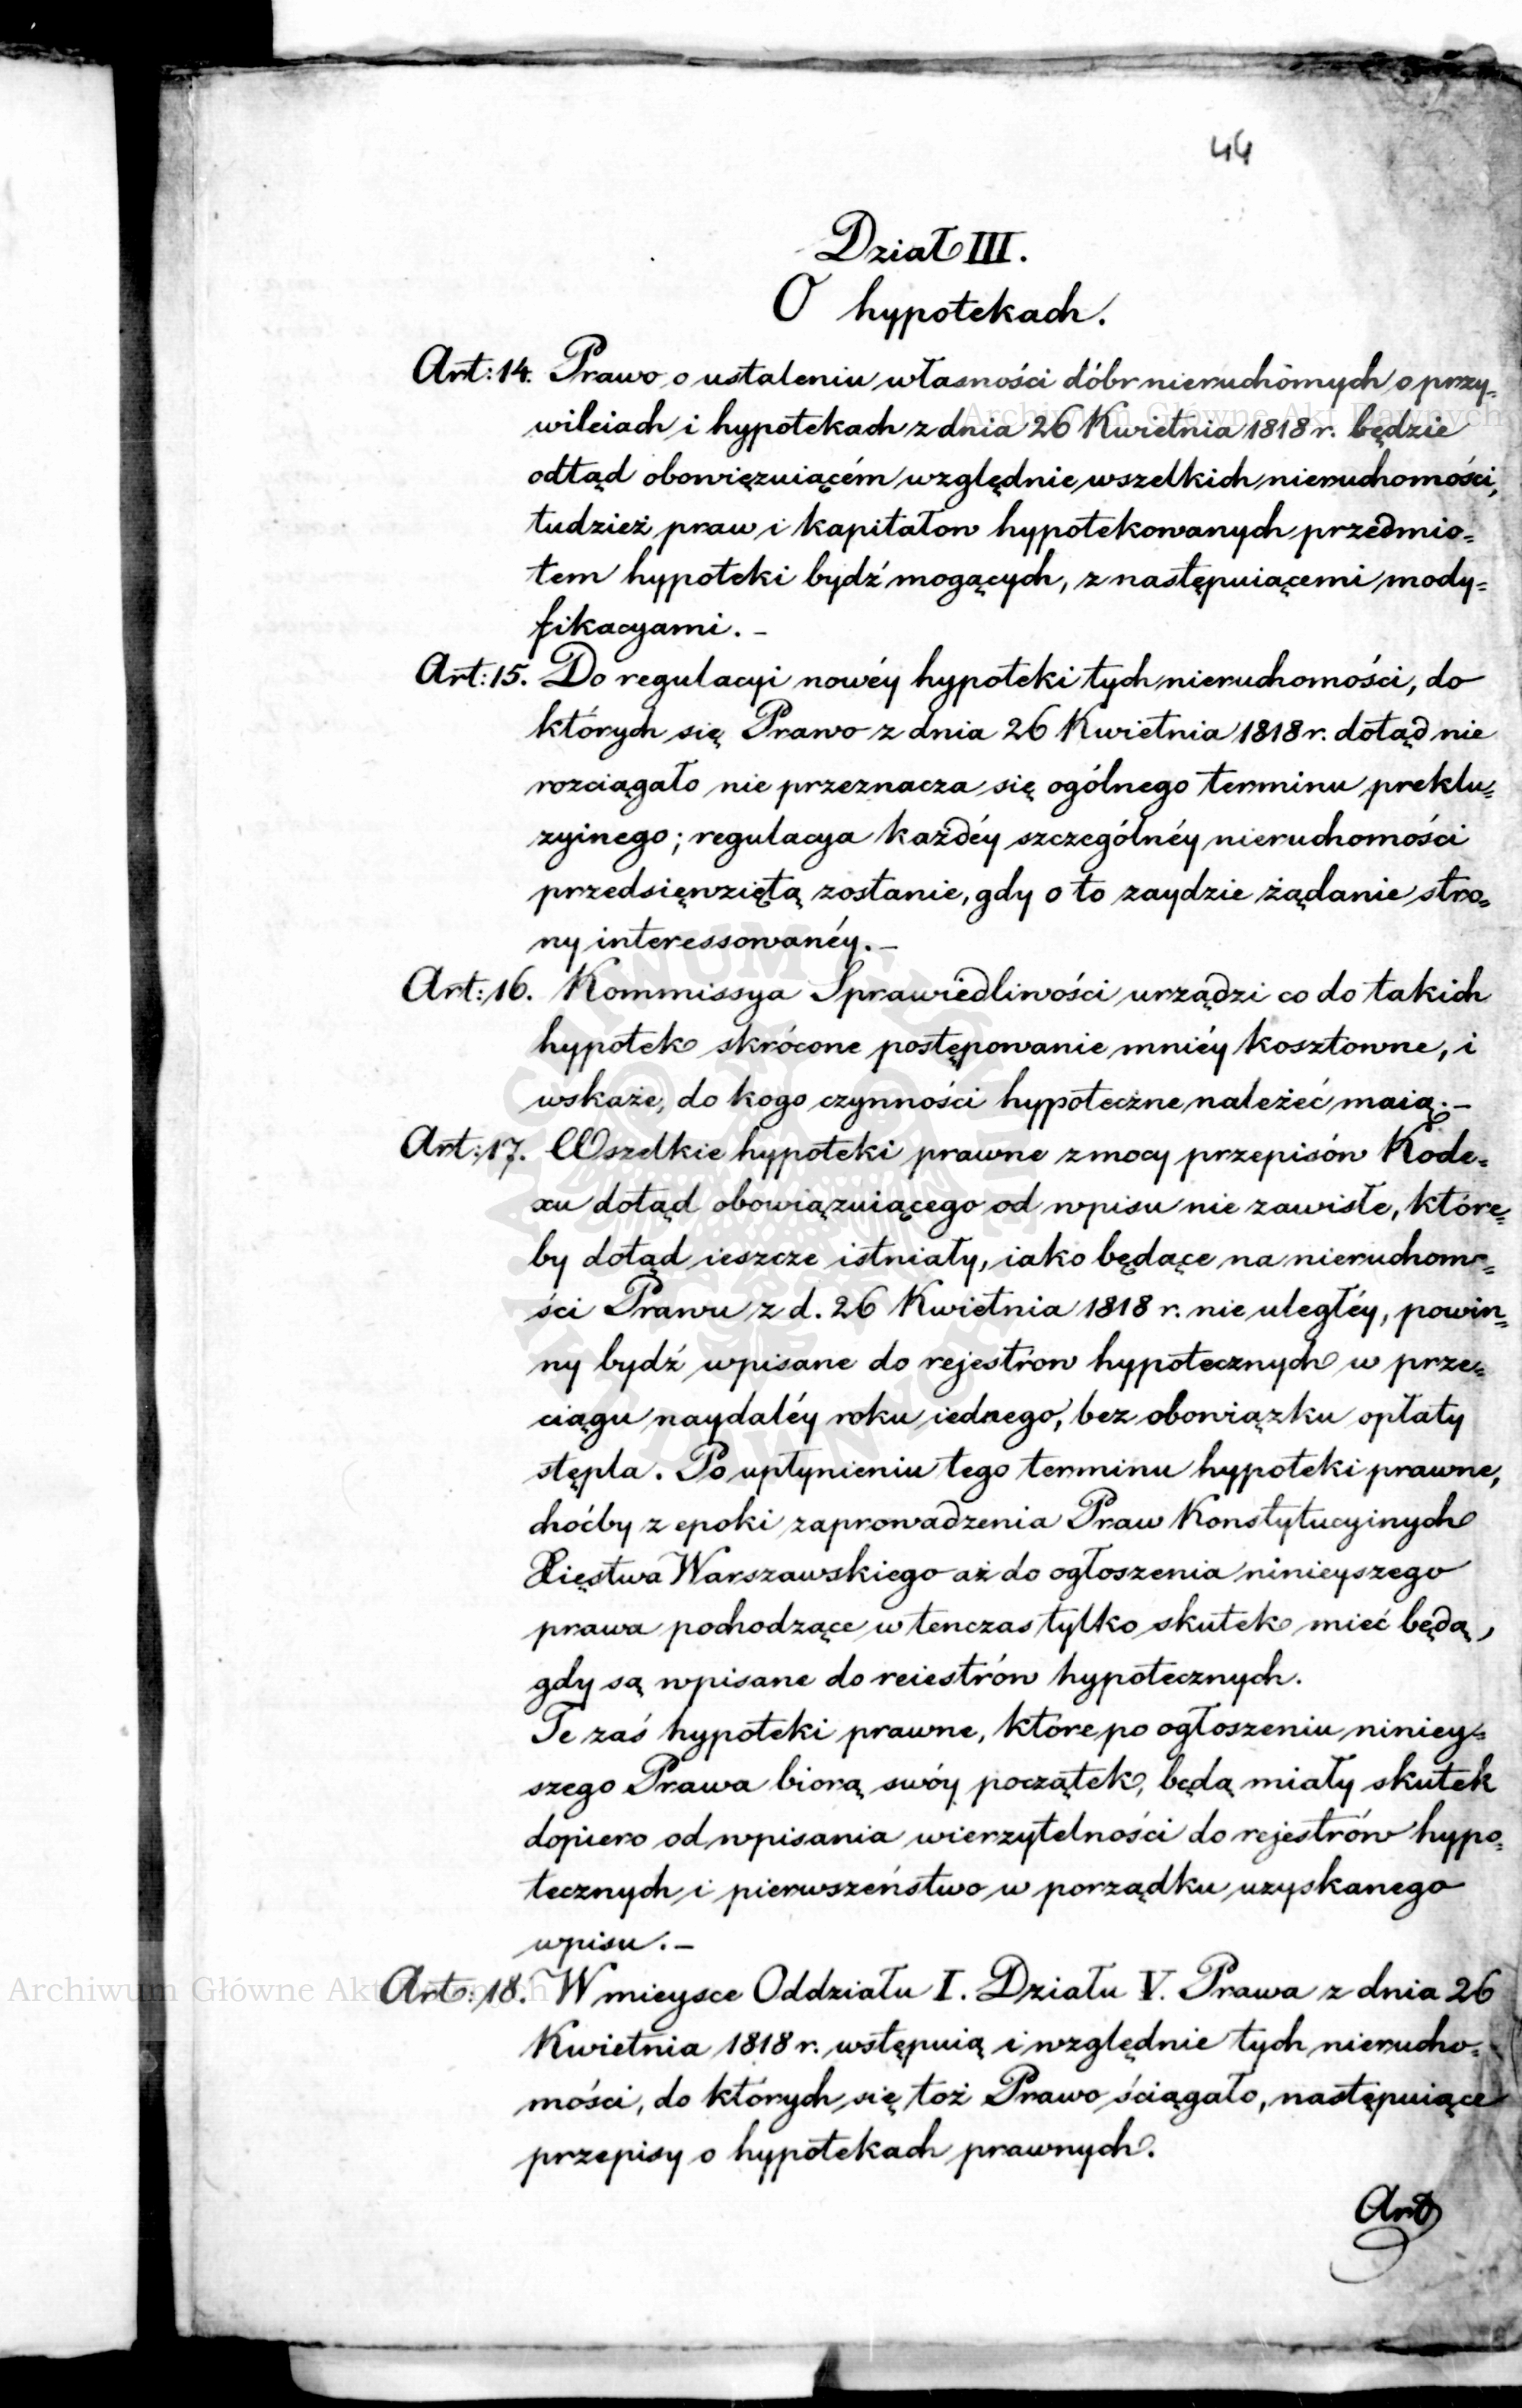 44
Dział III.
O hypotekach.
Art: 14. Prawo o ustaleniu własności dóbr nieruchomych o przy=
wileiach i hypotekach z dnia 26 Kwietnia 1818 r. będzie
odtąd obowięzuiącém względnie wszelkich nieruchomości,
tudzież praw i kapitałow hypotekowanych przedmio=
tem hypoteki bydź mogących, z następuiącemi mody=
fikacyami. –
Art: 15. Do regulacyi nowéy hypoteki tych nieruchomości, do
których się Prawo z dnia 26 Kwietnia 1818 r. dotąd nie
rozciągało nie przeznacza się ogólnego terminu preklu=
zyinego; regulacya każdéy szczególnéy nieruchomości
przedsięwziętą zostanie, gdy o to zaydzie żądanie stro=
ny interessowanéy. –
Art: 16. Kommissya Sprawiedliwości urządzi co do takich
hypotek skrócone postępowanie mniéy kosztowne, i
wskaże, do kogo czynności hypoteczne należeć maią. –
Art: 17. Wszelkie hypoteki prawne z mocy przepisów Kode=
xu dotąd obowiązuiącego od wpisu nie zawisłe, które=
by dotąd ieszcze istniały, iako będące na nieruchomo=
ści Prawu z d. 26 Kwietnia 1818 r. nie uległéy, powin=
ny bydź wpisane do rejestrow hypotecznych w prze=
ciągu naydaléy roku iednego, bez obowiązku opłaty
stępla. Po upłynieniu tego terminu hypoteki prawne,
choćby z epoki zaprowadzenia Praw Konstytucyinych
Xięstwa Warszawskiego aż do ogłoszenia ninieyszego
prawa pochodzące w tenczas tylko skutek mieć będą,
gdy są wpisane do reiestrów hypotecznych.
Te zaś hypoteki prawne, które po ogłoszeniu niniey=
szego Prawa biorą swóy początek, będą miały skutek
dopiero od wpisania wierzytelności do rejestrów hypo=
tecznych i pierwszeństwo w porządku uzyskanego
wpisu. –
Art: 18. W mieysce Oddziału I. Działu V. Prawa z dnia 26
Kwietnia 1818 r. wstępuią i względnie tych nierucho=
mości, do których się toż Prawo ściągało, następuiące
przepisy o hypotekach prawnych.
Art
Archiwum Główne Akt Dawnych
Archiwum Główne Akt Dawnych
ARCHIWUM GŁÓWNE AKT DAWNYCH